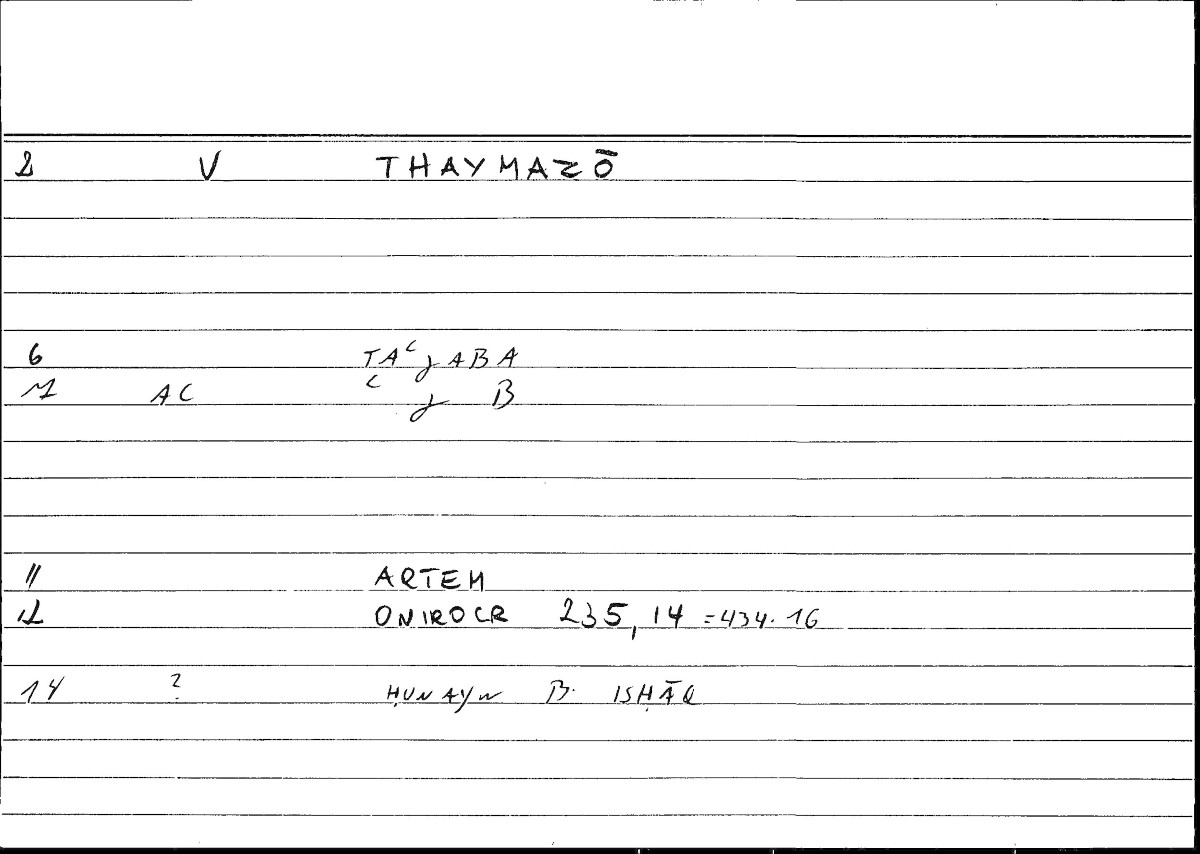 2 V THAYMAZŌ
6 TAʿJABA
7 AC ʿ J B
11 ARTEM
12 ONIROCR 235,14 = 434.16
14 ? ḤUNAYN B. ISḤĀQ